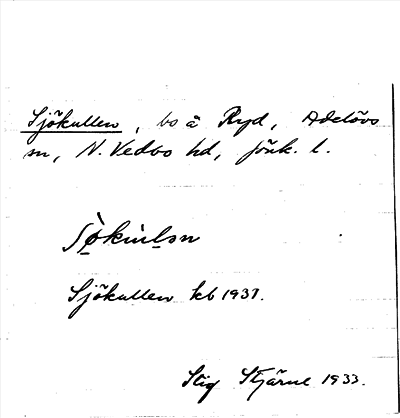 Sjökullen, bo å Ryd, Adelövs
sn, N. Vedbo hd, Jönk. l.
Sjökullen kb 1931.
Stig Stjärne 1933.